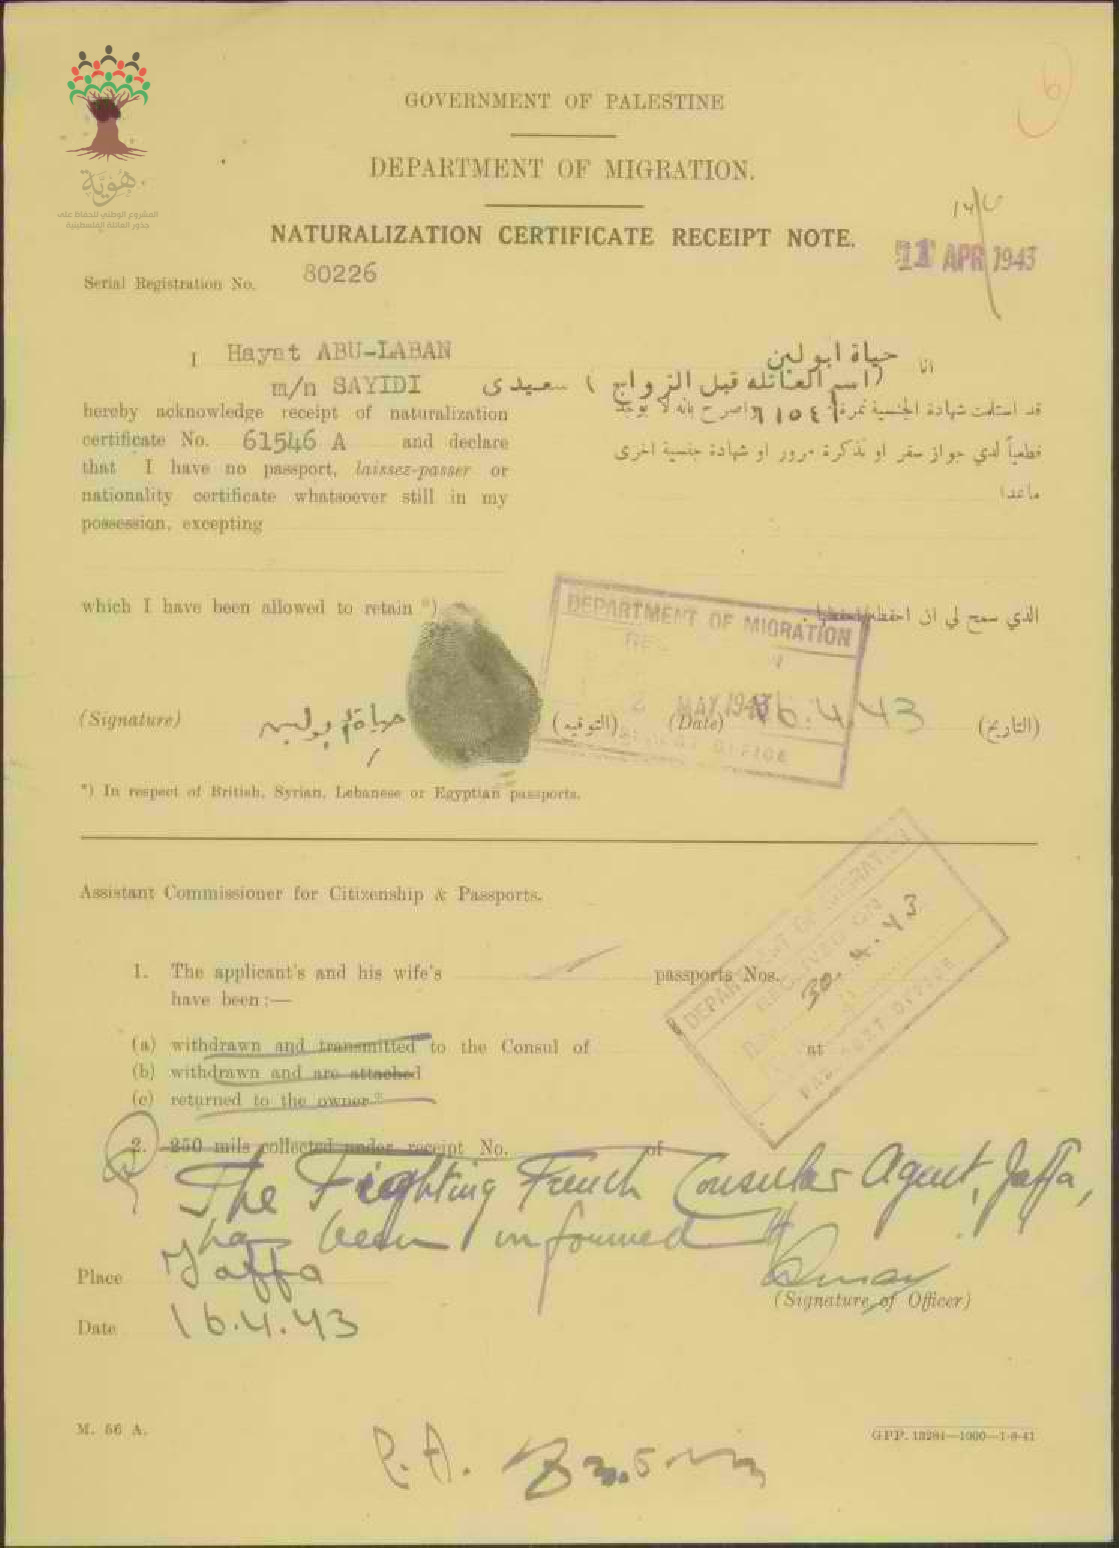 هوية
المشروع الوطني للحفاظ على
جذور العائلة الفلسطينية
6
GOVERNMENT OF PALESTINE
DEPARTMENT OF MIGRATION.
NATURALIZATION CERTIFICATE RECEIPT NOTE.
11 APR 1943
Serial Registration No. 80226
I Hayat ABU-LABAN
m/n SAYIDI
hereby acknowledge receipt of naturalization
certificate No. 61546 A and declare
that I have no passport, laissez-passer or
nationality certificate whatsoever still in my
possession, excepting
انا حياة ابو لبن
(اسم العائله قبل الزواج) سعيدى
قد استلمت شهادة الجنسية نمرة اصرح بانه لا يوجد
قطعياً لدي جواز سفر او تذكرة مرور او شهادة جنسية اخرى
ماعدا
which I have been allowed to retain *)
الذي سمح لي ان
DEPARTMENT OF MIGRATION
2 MAY 1943
(Signature) حياة ابو لبن (التوقيع)
(Date) 16.4.43 (التاريخ)
*) In respect of British, Syrian, Lebanese or Egyptian passports.
Assistant Commissioner for Citizenship & Passports.
DEPARTMENT OF MIGRATION
RECEIVED ON
30.4.43
1. The applicant's and his wife's passports Nos.
have been:—
(a) withdrawn and transmitted to the Consul of at
(b) withdrawn and are attached
(c) returned to the owner*
2. 250 mils collected under receipt No. of
The Fighting French Consular Agent, Jaffa,
has been informed
Place Jaffa
(Signature of Officer)
Date 16.4.43
M. 56 A.
GPP. 13284—1000—1-8-41
P.A.